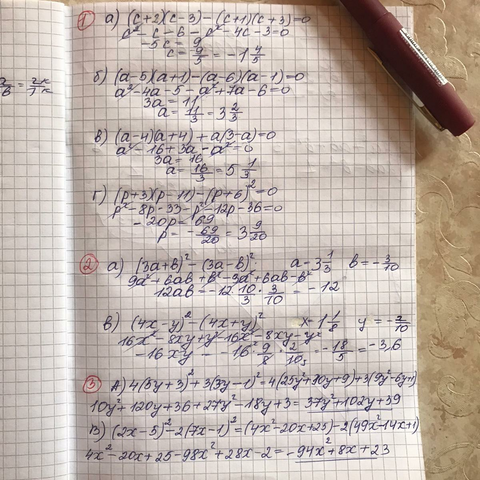 а/в = 2x/7x
1 а) (c+2)(c-3)-(c+1)(c+3)=0
c²-c-6-c²-4c-3=0
-5c=9
c=9/5=-1 4/5
б) (a-5)(a+1)-(a-6)(a-1)=0
a²-4a-5-a²+7a-6=0
3a=11
a=11/3=3 2/3
в) (a-4)(a+4)+a(3-a)=0
a²-16+3a-a²=0
3a=16
a=16/3=5 1/3
г) (p+3)(p-11)-(p+6)²=0
p²-8p-33-p²-12p-36=0
-20p=69
p=-69/20=3 9/20
2 а) (3a+в)²-(3a-в)². a-3 1/3 в=-3/10
9a²+6aв+в²-9a²+6aв-в²
12aв=-12·10/3·3/10=-12
в) (4x-y)²-(4x+y)² x-1 1/8 y=-2/10
16x²-8xy+y²-16x²-8xy-y²
-16xy - -16·9/8·2/10=-18/5=-3,6
3 А) 4(5y+3)²+3(3y-1)²=4(25y²+30y+9)+3(9y²-6y+1)
10y²+120y+36+27y²-18y+3=37y²+102y+39
В) (2x-5)²-2(7x-1)²=(4x²-20x+25)-2(49x²-14x+1)
4x²-20x+25-98x²+28x-2=-94x²+8x+23